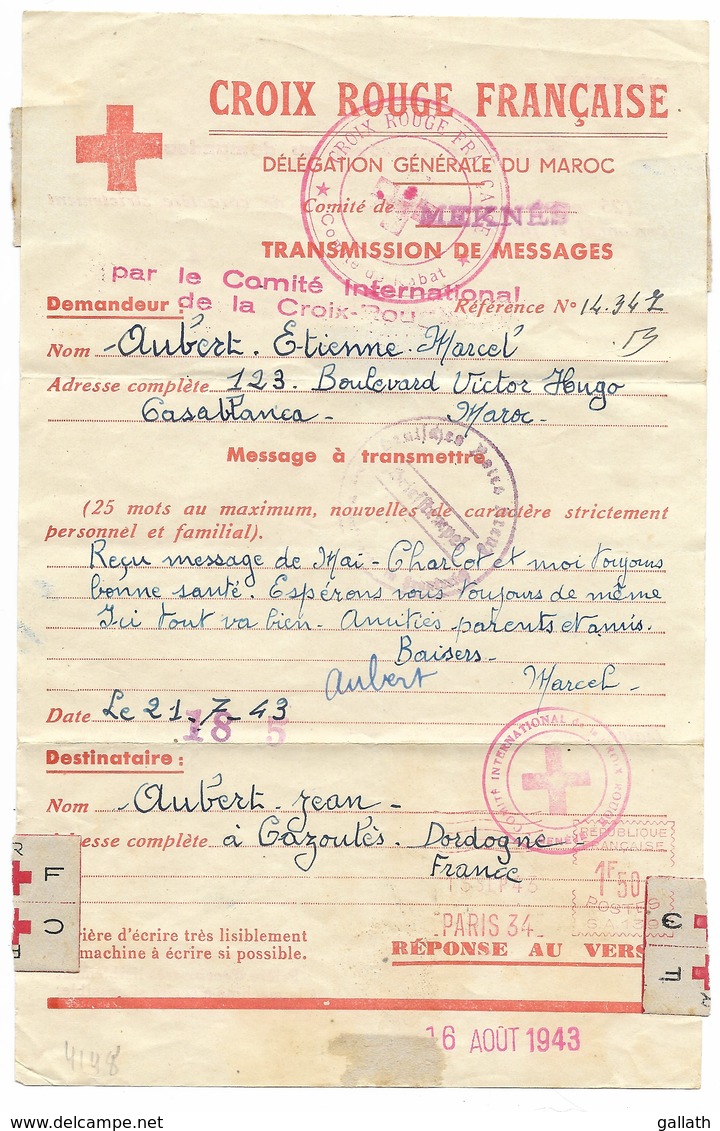 CROIX ROUGE FRANÇAISE
DÉLÉGATION GÉNÉRALE DU MAROC
Comité de MEKNÈS
TRANSMISSION DE MESSAGES
par le Comité International
de la Croix-Rouge
Demandeur : Référence N° 14.347
Nom Aubert. Etienne. Marcel
Adresse complète 123. Boulevard Victor Hugo
Casablanca - Maroc -
Message à transmettre
(25 mots au maximum, nouvelles de caractère strictement
personnel et familial).
Reçu message de Mai - Charlot et moi toujours
bonne santé. Espérons vous toujours de même
Ici tout va bien - Amitiés parents et amis.
Baisers -
Aubert Marcel
Date Le 21-7-43
18 5
Destinataire :
COMITÉ INTERNATIONAL de la CROIX ROUGE
GENÈVE
Nom - Aubert - Jean -
RÉPUBLIQUE
FRANÇAISE
Adresse complète à Cazoulès. Dordogne -
France
1F50
POSTES
PARIS 34
R F
C
F
ière d'écrire très lisiblement
machine à écrire si possible.
RÉPONSE AU VERS
16 AOÛT 1943
4148
gallath